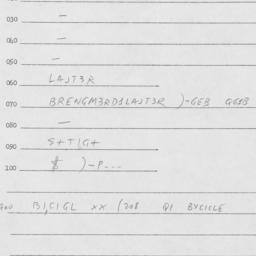 030 —
040 —
050 —
060 LAJT3R
070 BRENGM3RD1LAJT3R )-GEB GEB
080 —
090 S+T|G+
100 $ )-P...
BI,CIGL xx (208 QI BYCICLE